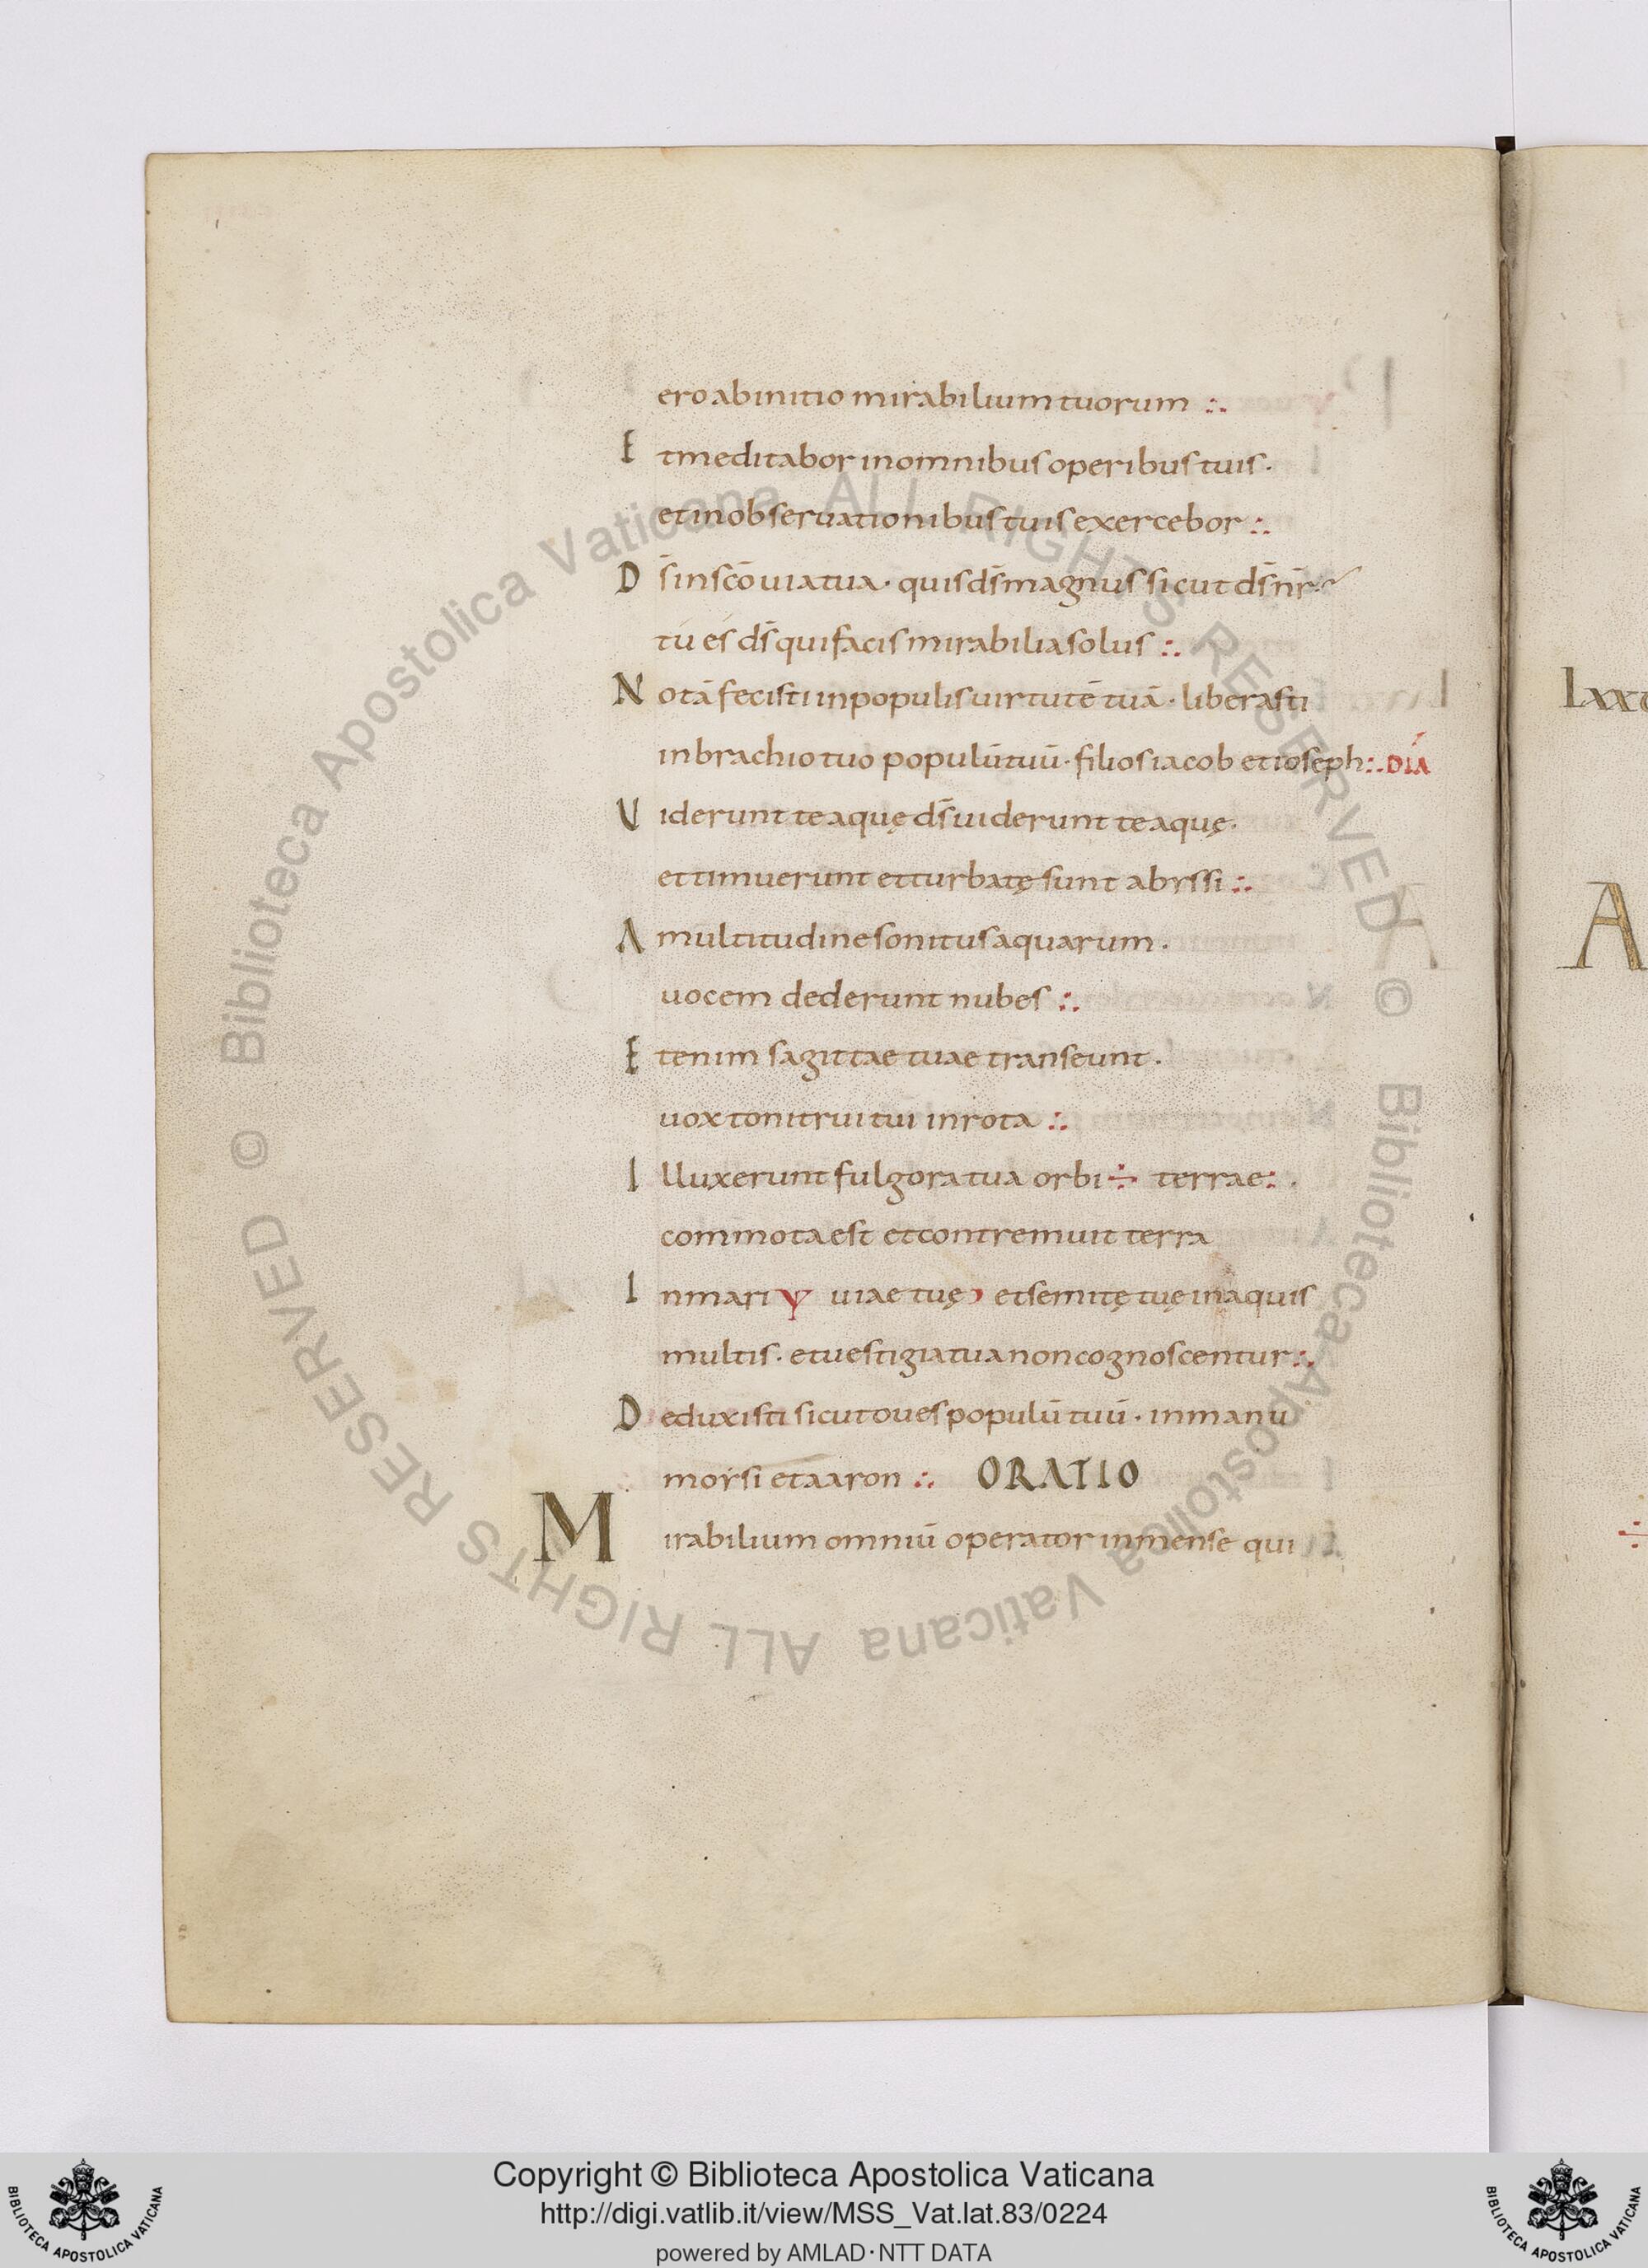 ero abinitio mirabilium tuorum :.
E tmeditabor inomnibus operibus tuis ·
et inobseruationibus tuis exercebor :.
D s̄ insc̄o uia tua · quis ds̄ magnus sicut ds̄ nr̄
tú és ds̄ qui facis mirabilia solus :.
N otā fecisti inpopulis uirtutē tuā · liberasti
inbrachio tuo populū tuū · filios iacob et ioseph :. DIA
U iderunt te aquę ds̄ uiderunt te aquę ·
et timuerunt et turbatę sunt abyssi :.
A multitudine sonitus aquarum ·
uocem dederunt nubes :.
E tenim sagittae tuae transeunt ·
uox tonitrui tui inrota :.
I lluxerunt fulgora tua orbi ÷ terrae : ·
commota est et contremuit terra
I nmari Y uiae tuę et semitę tuę inaquis
multis · et uestigia tua non cognoscentur :.
D eduxisti sicut oues populū tuū · inmanu
moysi et aaron :. ORATIO
M irabilium omniū operator inmense qui
Lxxu
A
÷
© Biblioteca Apostolica Vaticana ALL RIGHTS RESERVED © Biblioteca Apostolica Vaticana ALL RIGHTS RESERVED
BIBLIOTECA APOSTOLICA VATICANA
Copyright © Biblioteca Apostolica Vaticana
http://digi.vatlib.it/view/MSS_Vat.lat.83/0224
powered by AMLAD·NTT DATA
BIBLIOTECA APOSTOLICA VATICANA